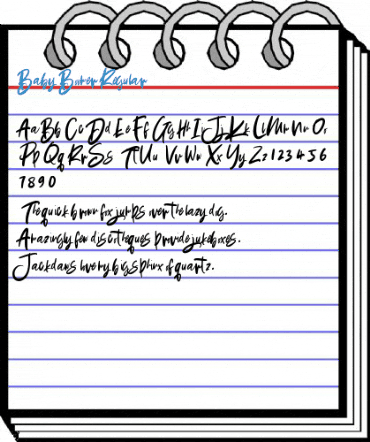 Baby Boxer Regular
Aa Bb Cc Dd Ee Ff Gg Hh Ii Jj Kk Ll Mm Nn Oo
Pp Qq Rr Ss Tt Uu Vv Ww Xx Yy Zz 1 2 3 4 5 6
7 8 9 0
The quick brown fox jumps over the lazy dog.
Amazingly few discotheques provide jukeboxes.
Jackdaws love my big sphinx of quartz.